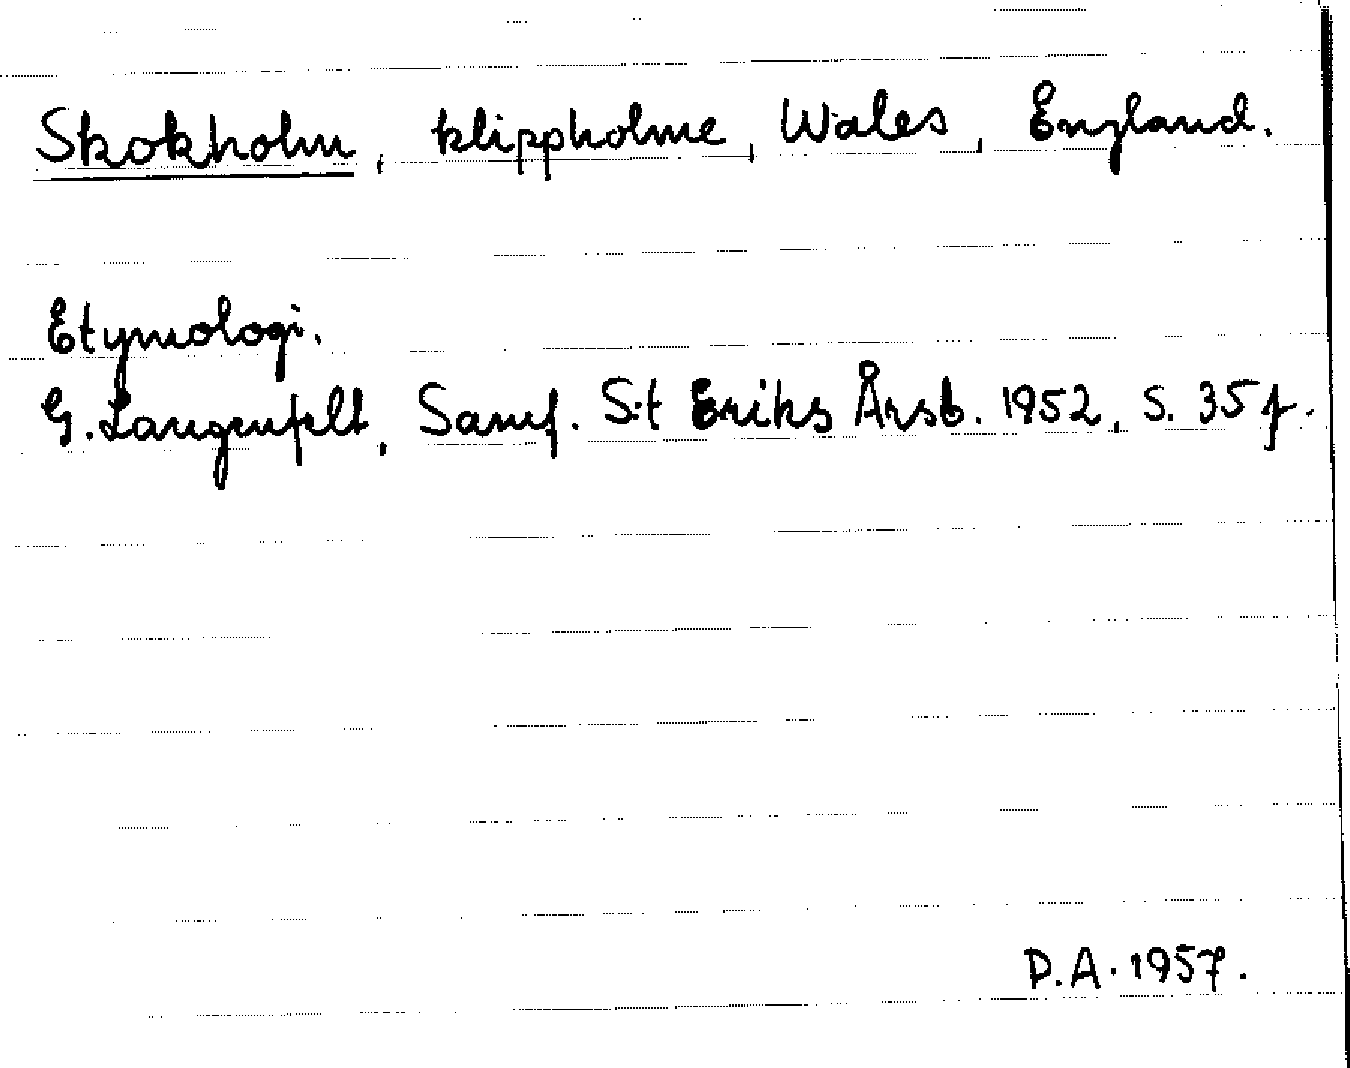 Skokholm, klippholme, Wales, England.
Etymologi.
G. Langenfelt, Samf. S:t Eriks Årsb. 1952, s. 35 f.
D.A. 1957.